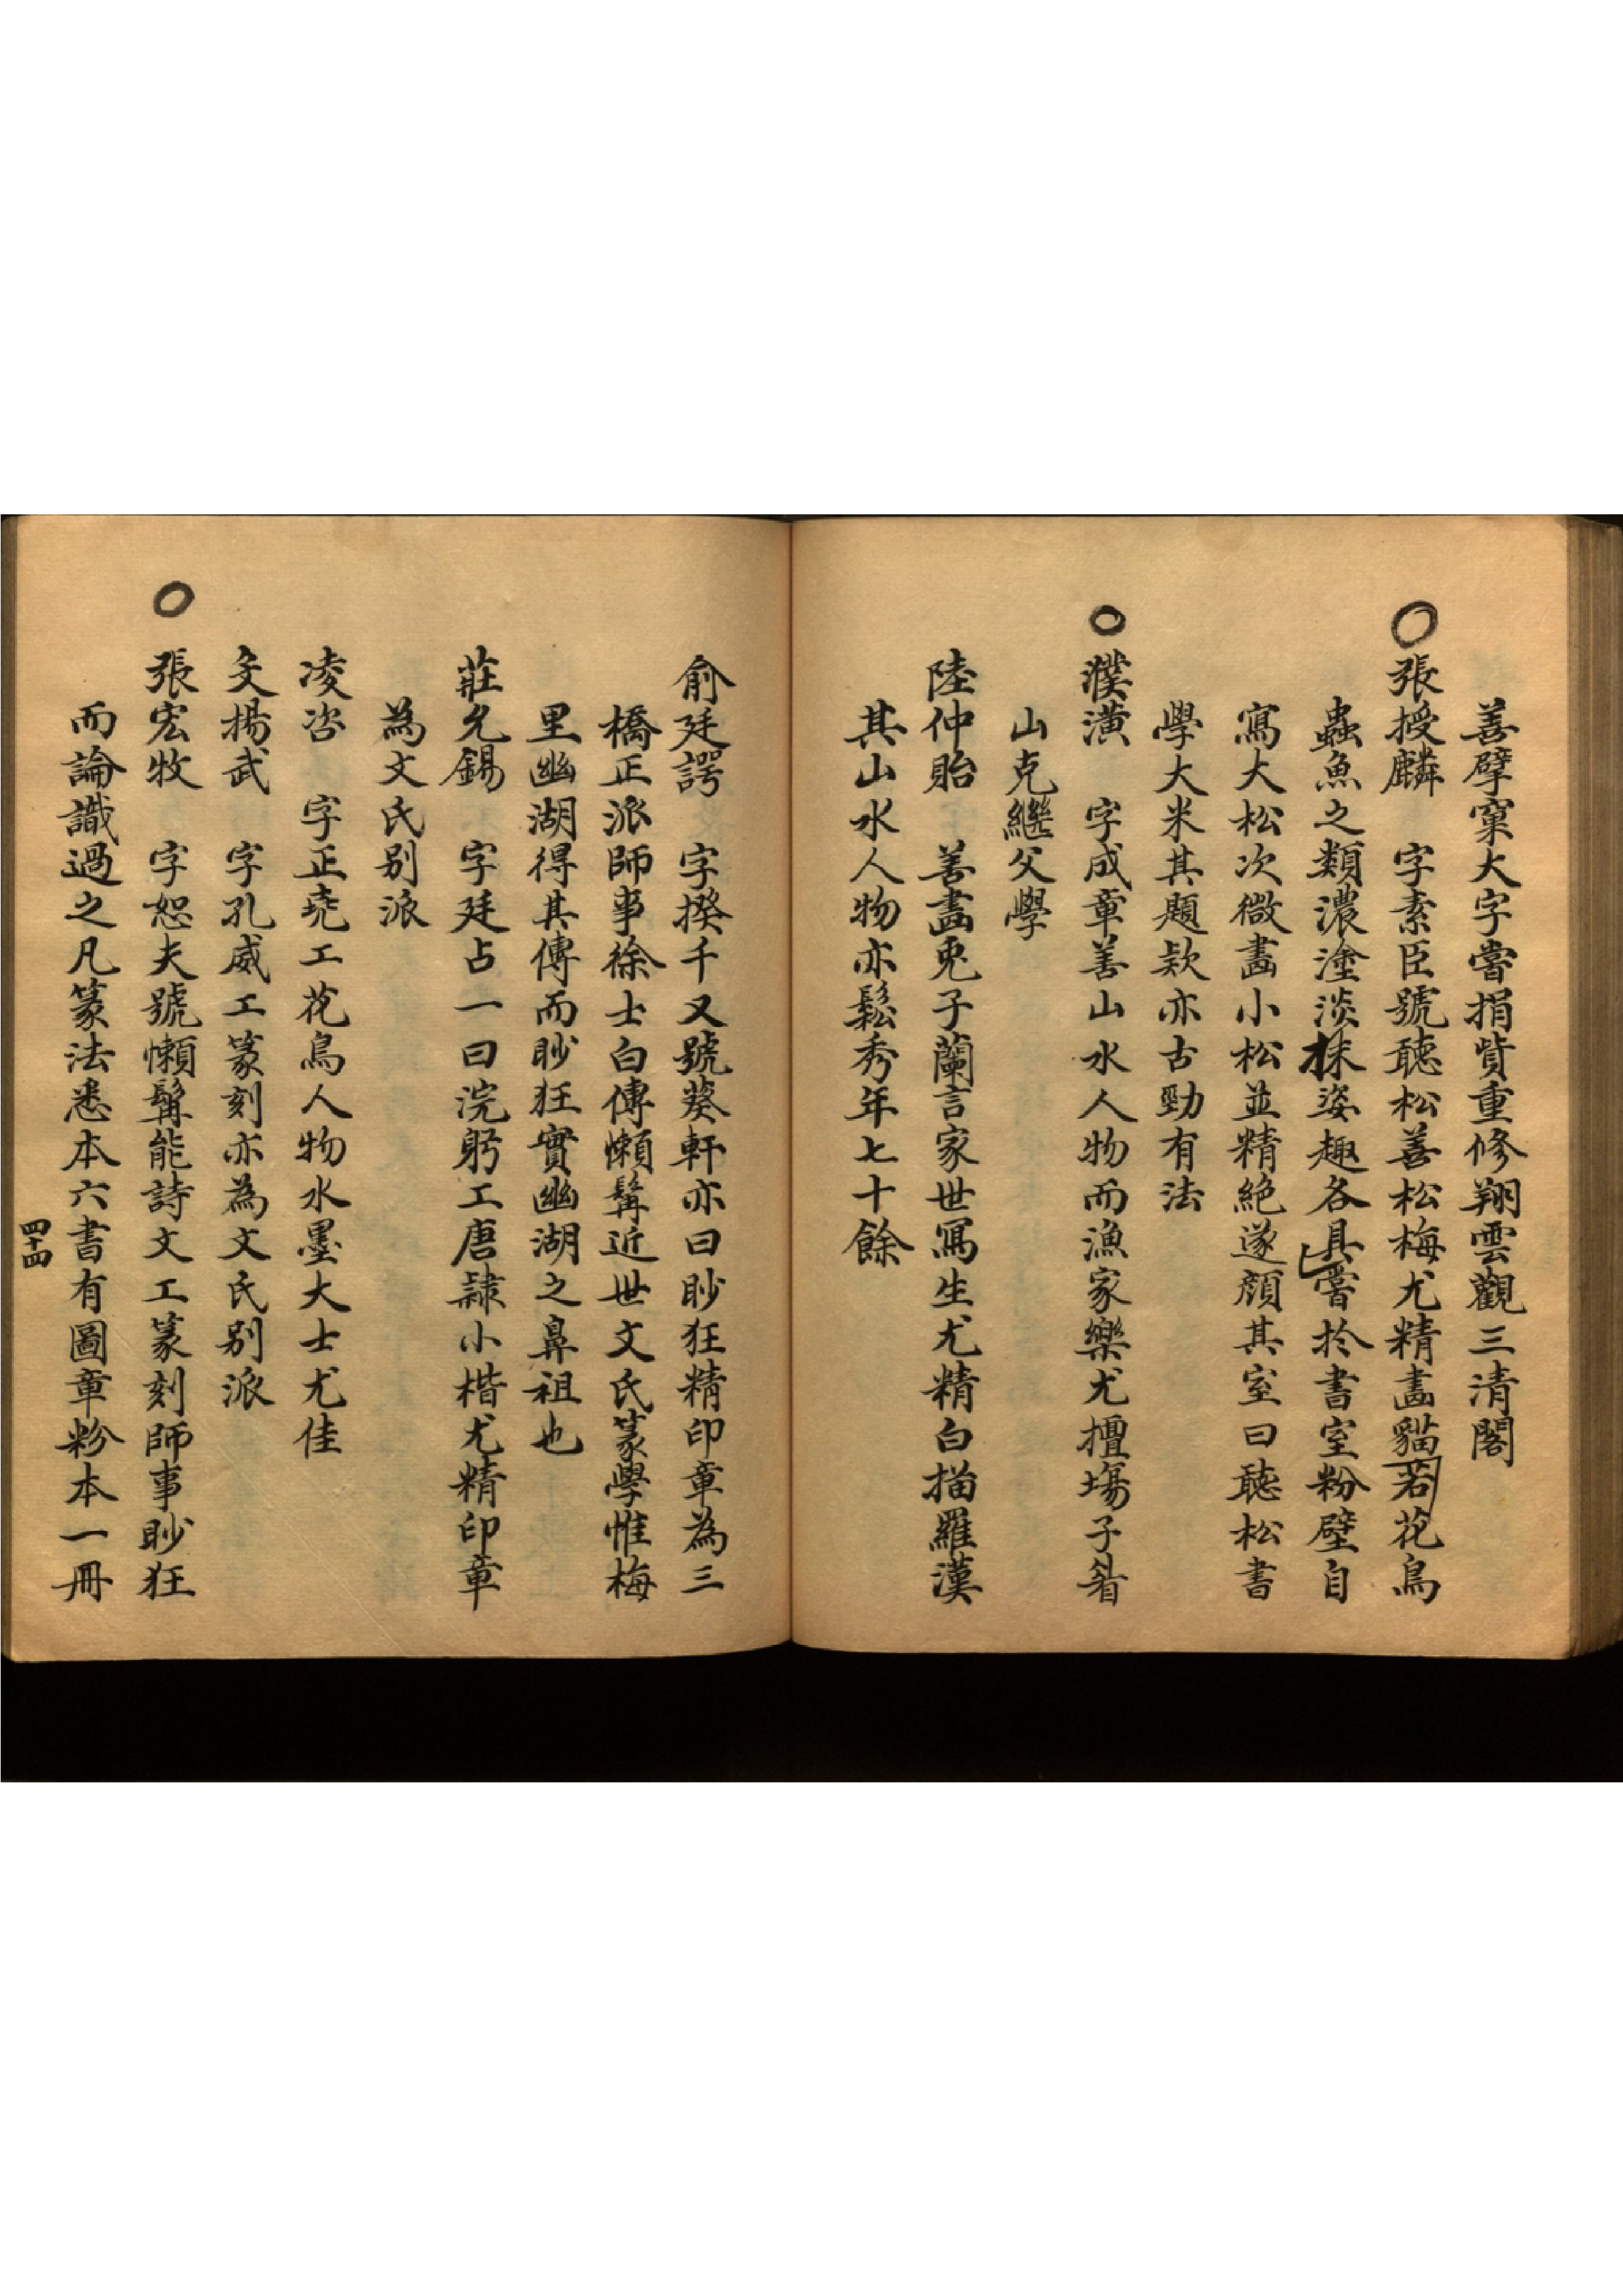 善擘窠大字嘗捐貲重修翔雲觀三清閣
張授麟　字素臣號聽松善松梅尤精畫貓若花鳥
蟲魚之類濃塗淡抹姿趣各具嘗於書室粉壁自
寫大松次微畫小松並精絕遂顏其室曰聽松書
學大米其題款亦古勁有法
濮潢　字成章善山水人物而漁家樂尤擅場子
山克繼父學
陸仲貽　善畫兎子蘭言家世寫生尤精白描羅漢
其山水人物亦鬆秀年七十餘
俞廷諤　字揆千又號葵軒亦曰眇狂精印章為三
橋正派師事徐士白傳懶髯近世文氏篆學惟梅
里幽湖得其傳而眇狂實幽湖之鼻祖也
莊允錫　字廷占一曰浣躬工唐隸小楷尤精印章
為文氏别派
凌咨　字正尭工花鳥人物水墨大士尤佳
文揚武　字孔威工篆刻亦為文氏别派
張宏牧　字恕夫號懶髯能詩文工篆刻師事眇狂
而論識過之凡篆法悉本六書有圖章粉本一冊
四十四